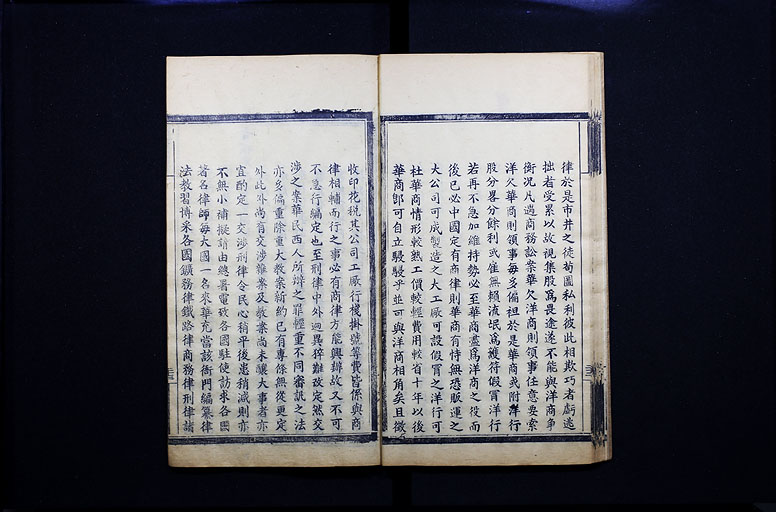 律於是市井之徒苟圖私利彼此相欺巧者虧逃
拙者受累以故視集股爲畏途遂不能與洋商爭
衡況凡遇商務訟案華欠洋商則領事任意要索
洋欠華商則領事每多偏袒於是華商或附洋行
股分畧分餘利或雇無賴流氓爲護符假冒洋行
若再不急加維持勢必至華商盡爲洋商之役而
後已必中國定有商律則華商有恃無恐販運之
大公司可成製造之大工廠可設假冒之洋行可
杜華商情形較熟工價較輕費用較省十年以後
華商即可自立駸駸乎並可與洋商相角矣且徵
收印花稅其公司工廠行棧掛號等費皆係與商
律相輔而行之事必有商律方能興辦故又不可
不急行編定也至刑律中外迥異猝難改定然交
涉之案華民西人所辦之罪輕重不同審訊之法
亦多偏重除重大教案新約已有專條無從更定
外此外尚有交涉雜案及教案尚未釀大事者亦
宜酌定一交涉刑律令民心稍平後患稍減則亦
不無小補擬請由總署電致各國駐使訪求各國
著名律師每大國一名來華充當該衙門編纂律
法教習博采各國鑛務律鐵路律商務律刑律諸